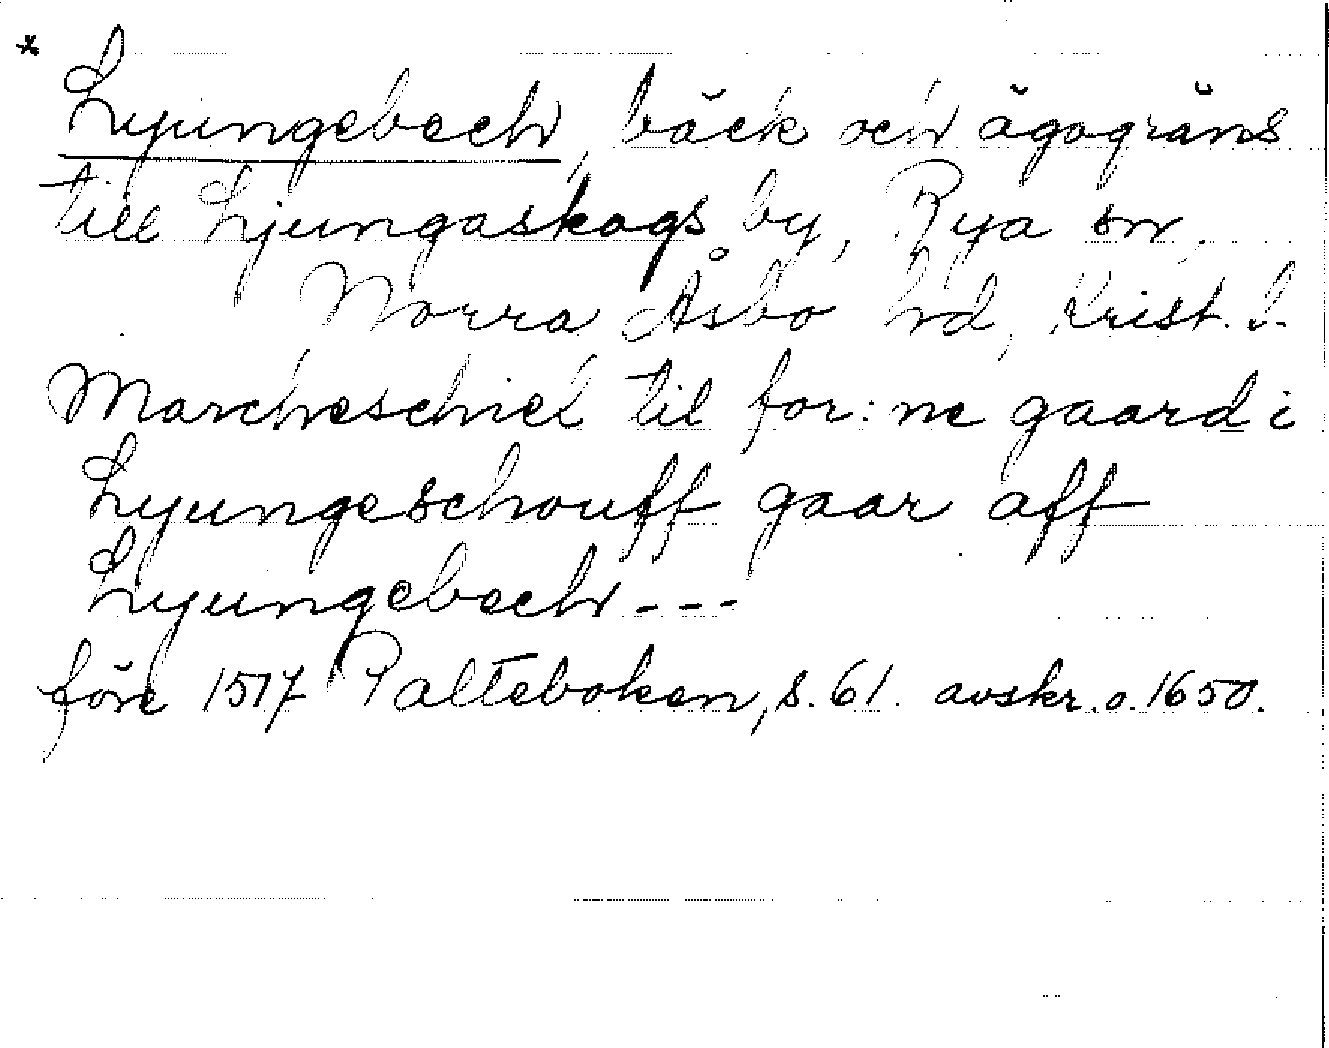 * Lyungebech, bäck och ägogräns
till Ljungaskogs by, Rya sn,
Norra Åsbo hd, Krist. l.
Marcheschiel til for:ne gaard i
Lyungeschouff gaar aff
Lyungebech ---
före 1517 Palteboken, s. 61. avskr. o. 1650.